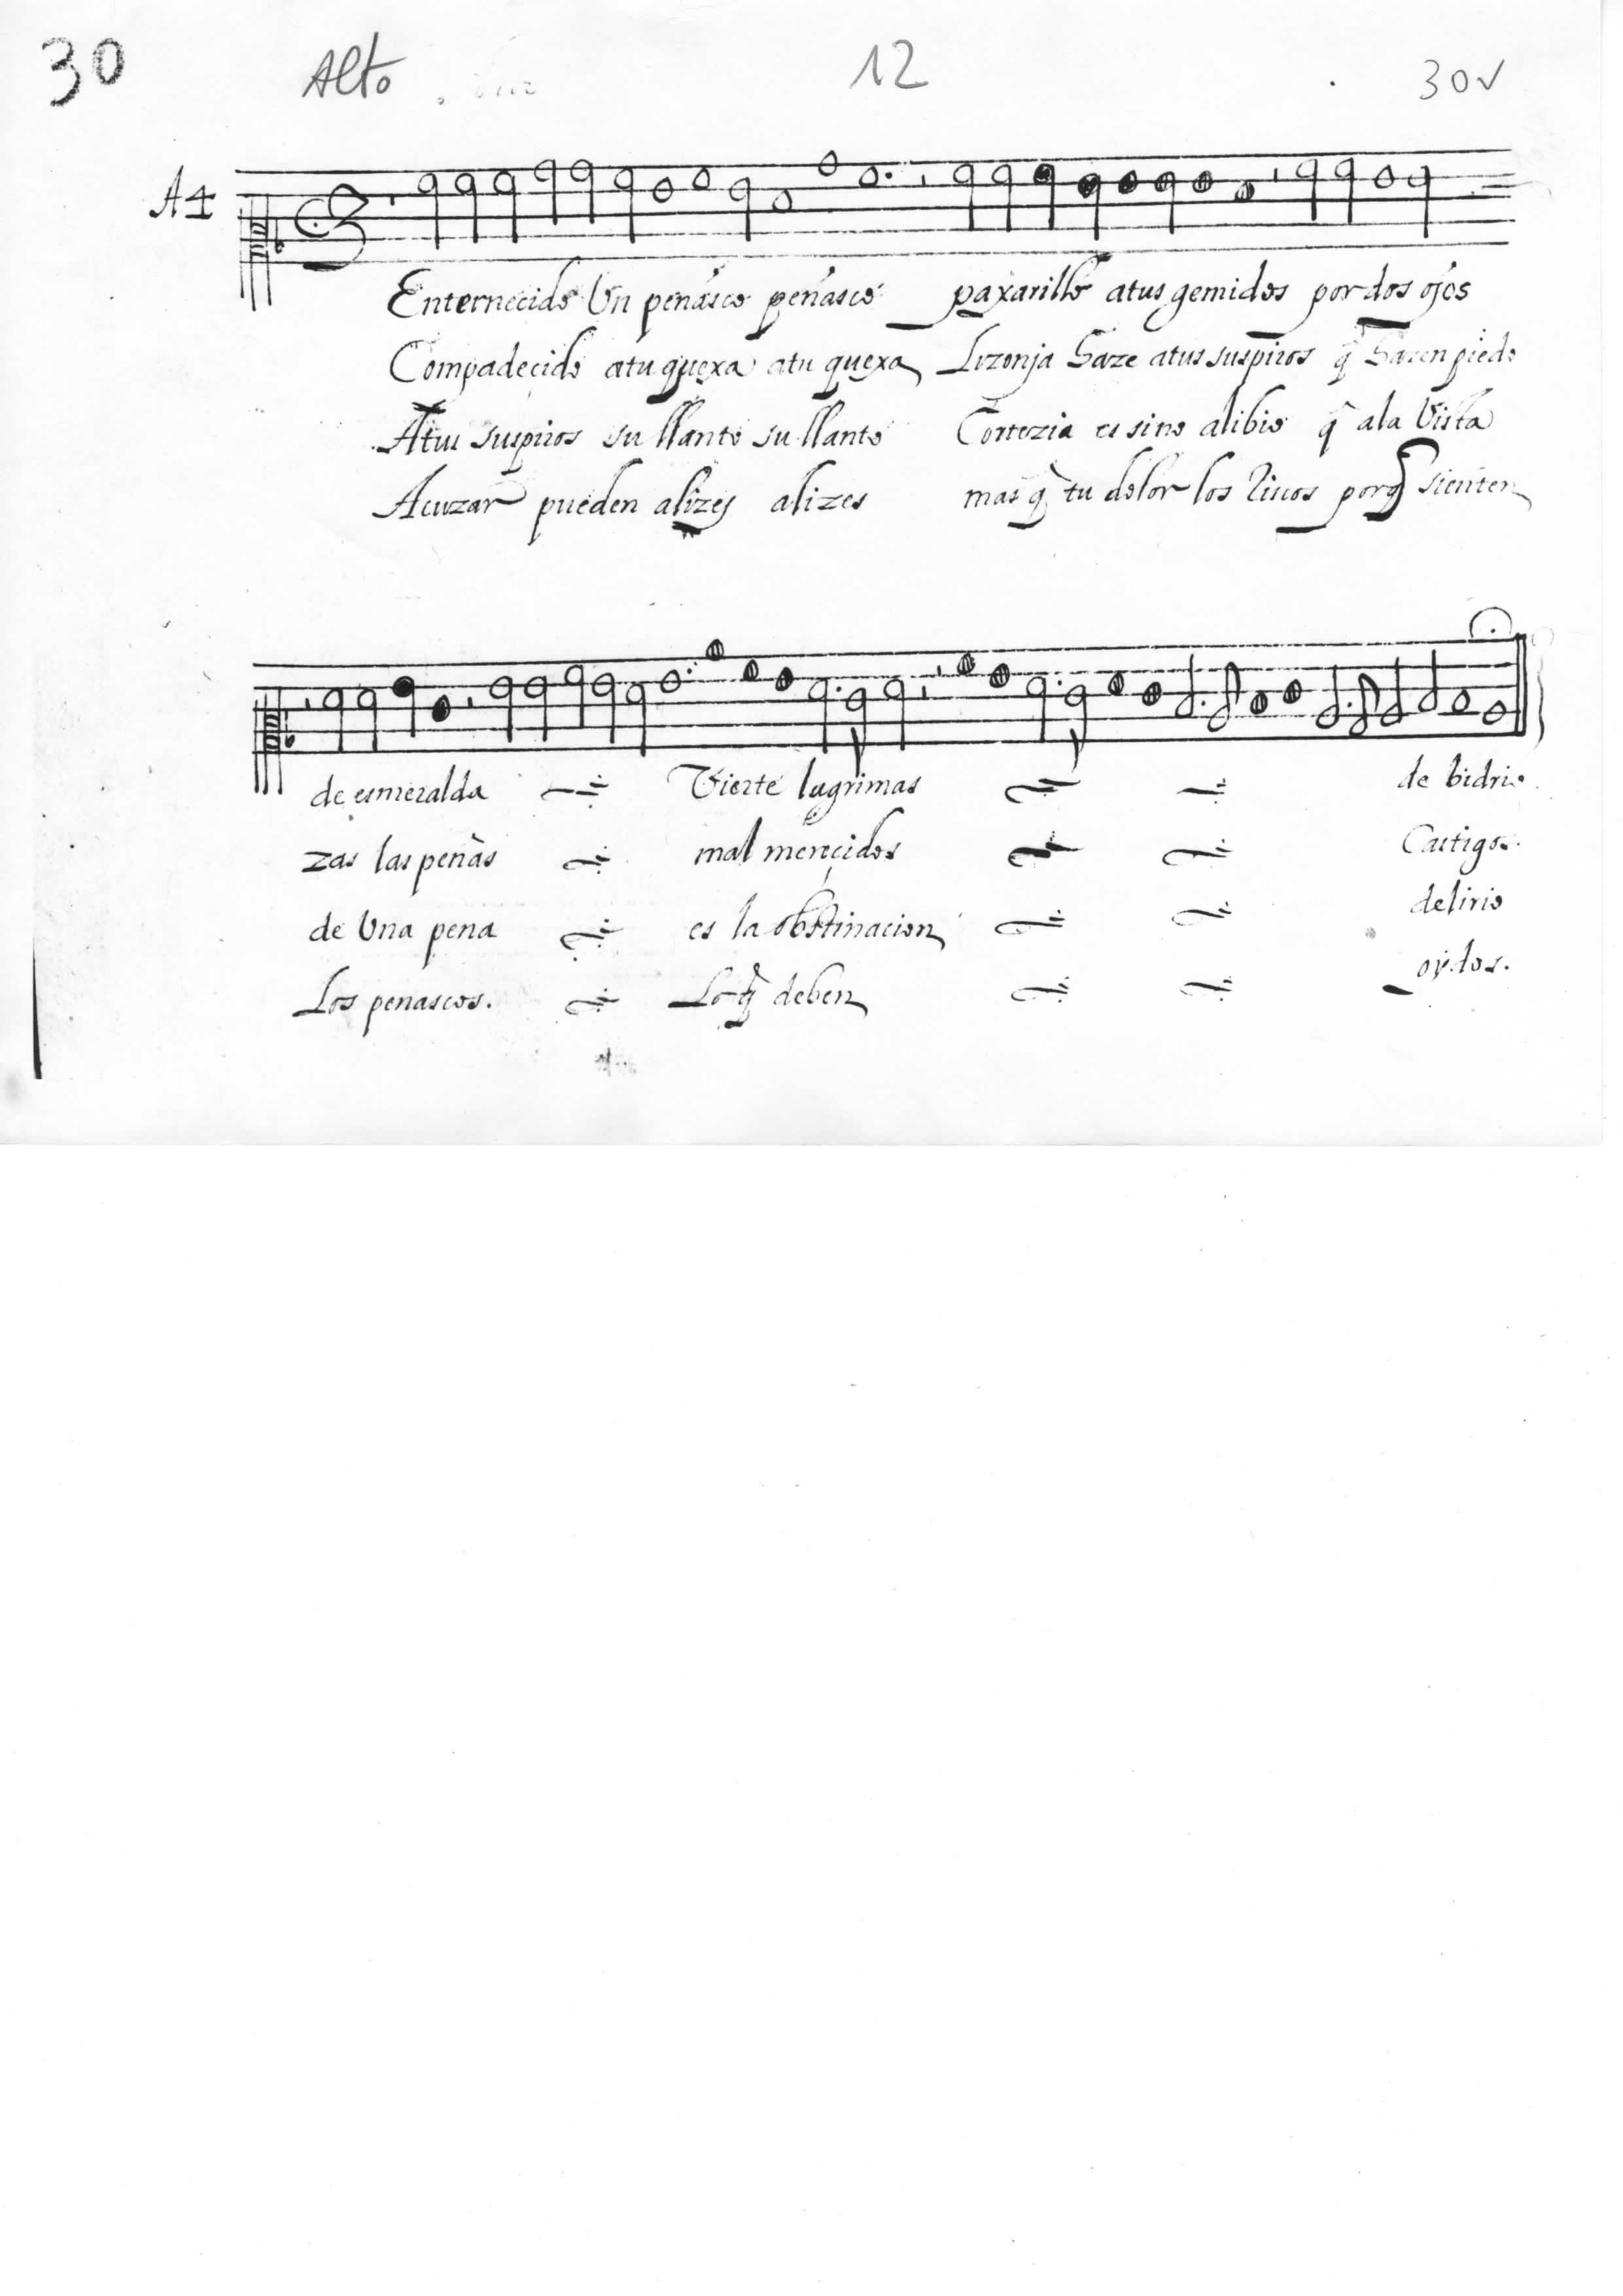 30 Alto 12 30v
A4
Enternecido Un penásco peñasco paxarillo atus gemidos por dos ojos
Compadecido atu quexa atu quexa Lizonja haze atus suspiros q̃ hazen piedo
Atus suspiros su llanto su llanto Cortezia es sino alibio q̃ ala Vista
Acuzar pueden alizes alizes mas q̃ tu dolor los Riscos porq̃ sienten
de esmeralda Vierte lagrimas de bidrio
zas las peñas mal merecidos Castigos.
de Una pena es la obstinacion delirio
Los penascos. Lo q̃ deben oydos.